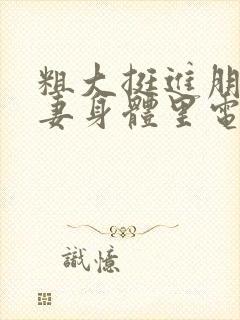 粗大挺進朋
妻身體里電
識憶